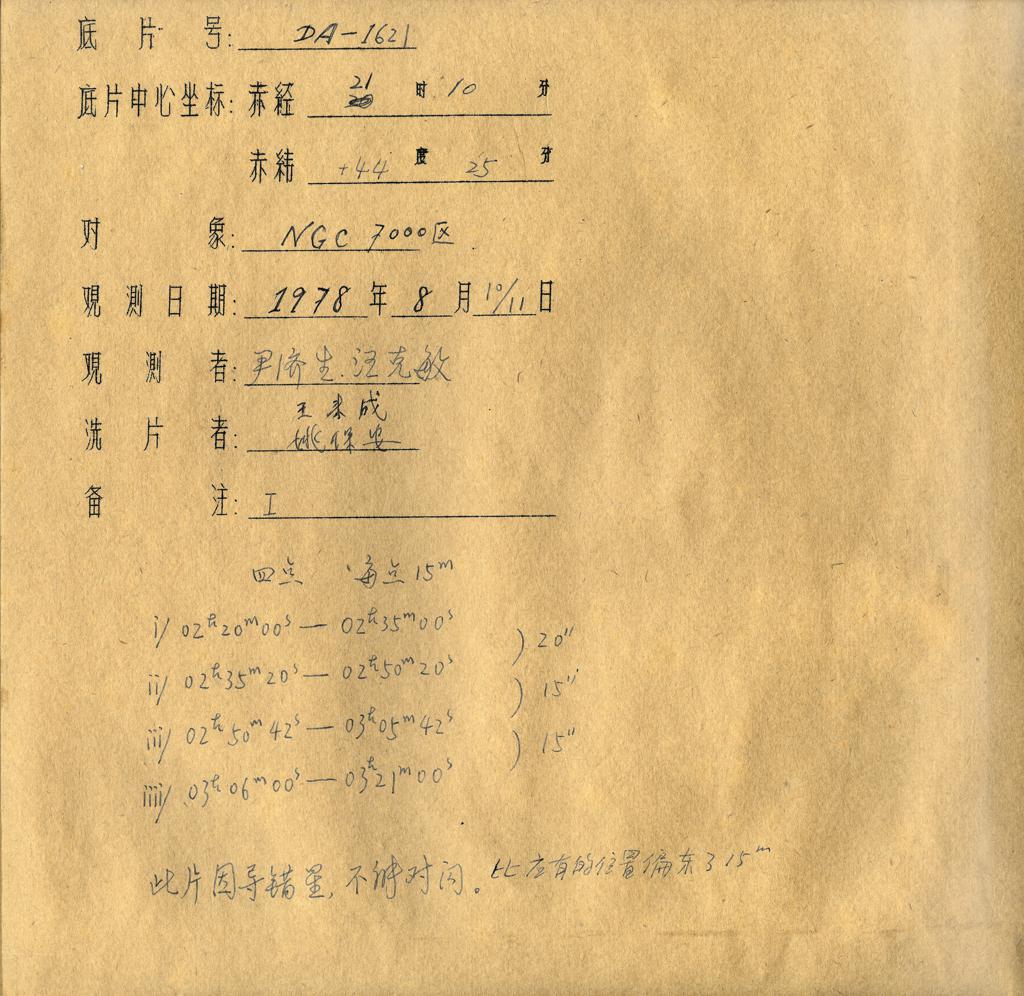 底片号: DA-1621
底片中心坐标: 赤経 21 时 10 分
赤緯 +44 度 25 分
对象: NGC 7000区
观测日期: 1978年 8月10/11日
观测者: 尹济生.汪克敏
洗片者: 王来成
姚保安
备注: I
四点 每点15ᵐ
i/ 02ʰ20ᵐ00ˢ — 02ʰ35ᵐ00ˢ
) 20"
ii/ 02ʰ35ᵐ20ˢ — 02ʰ50ᵐ20ˢ
) 15"
iii/ 02ʰ50ᵐ42ˢ — 03ʰ05ᵐ42ˢ
) 15"
iiii/ 03ʰ06ᵐ00ˢ — 03ʰ21ᵐ00ˢ
此片因导错星,不能对闪。比应有的位置偏东了15ᵐ